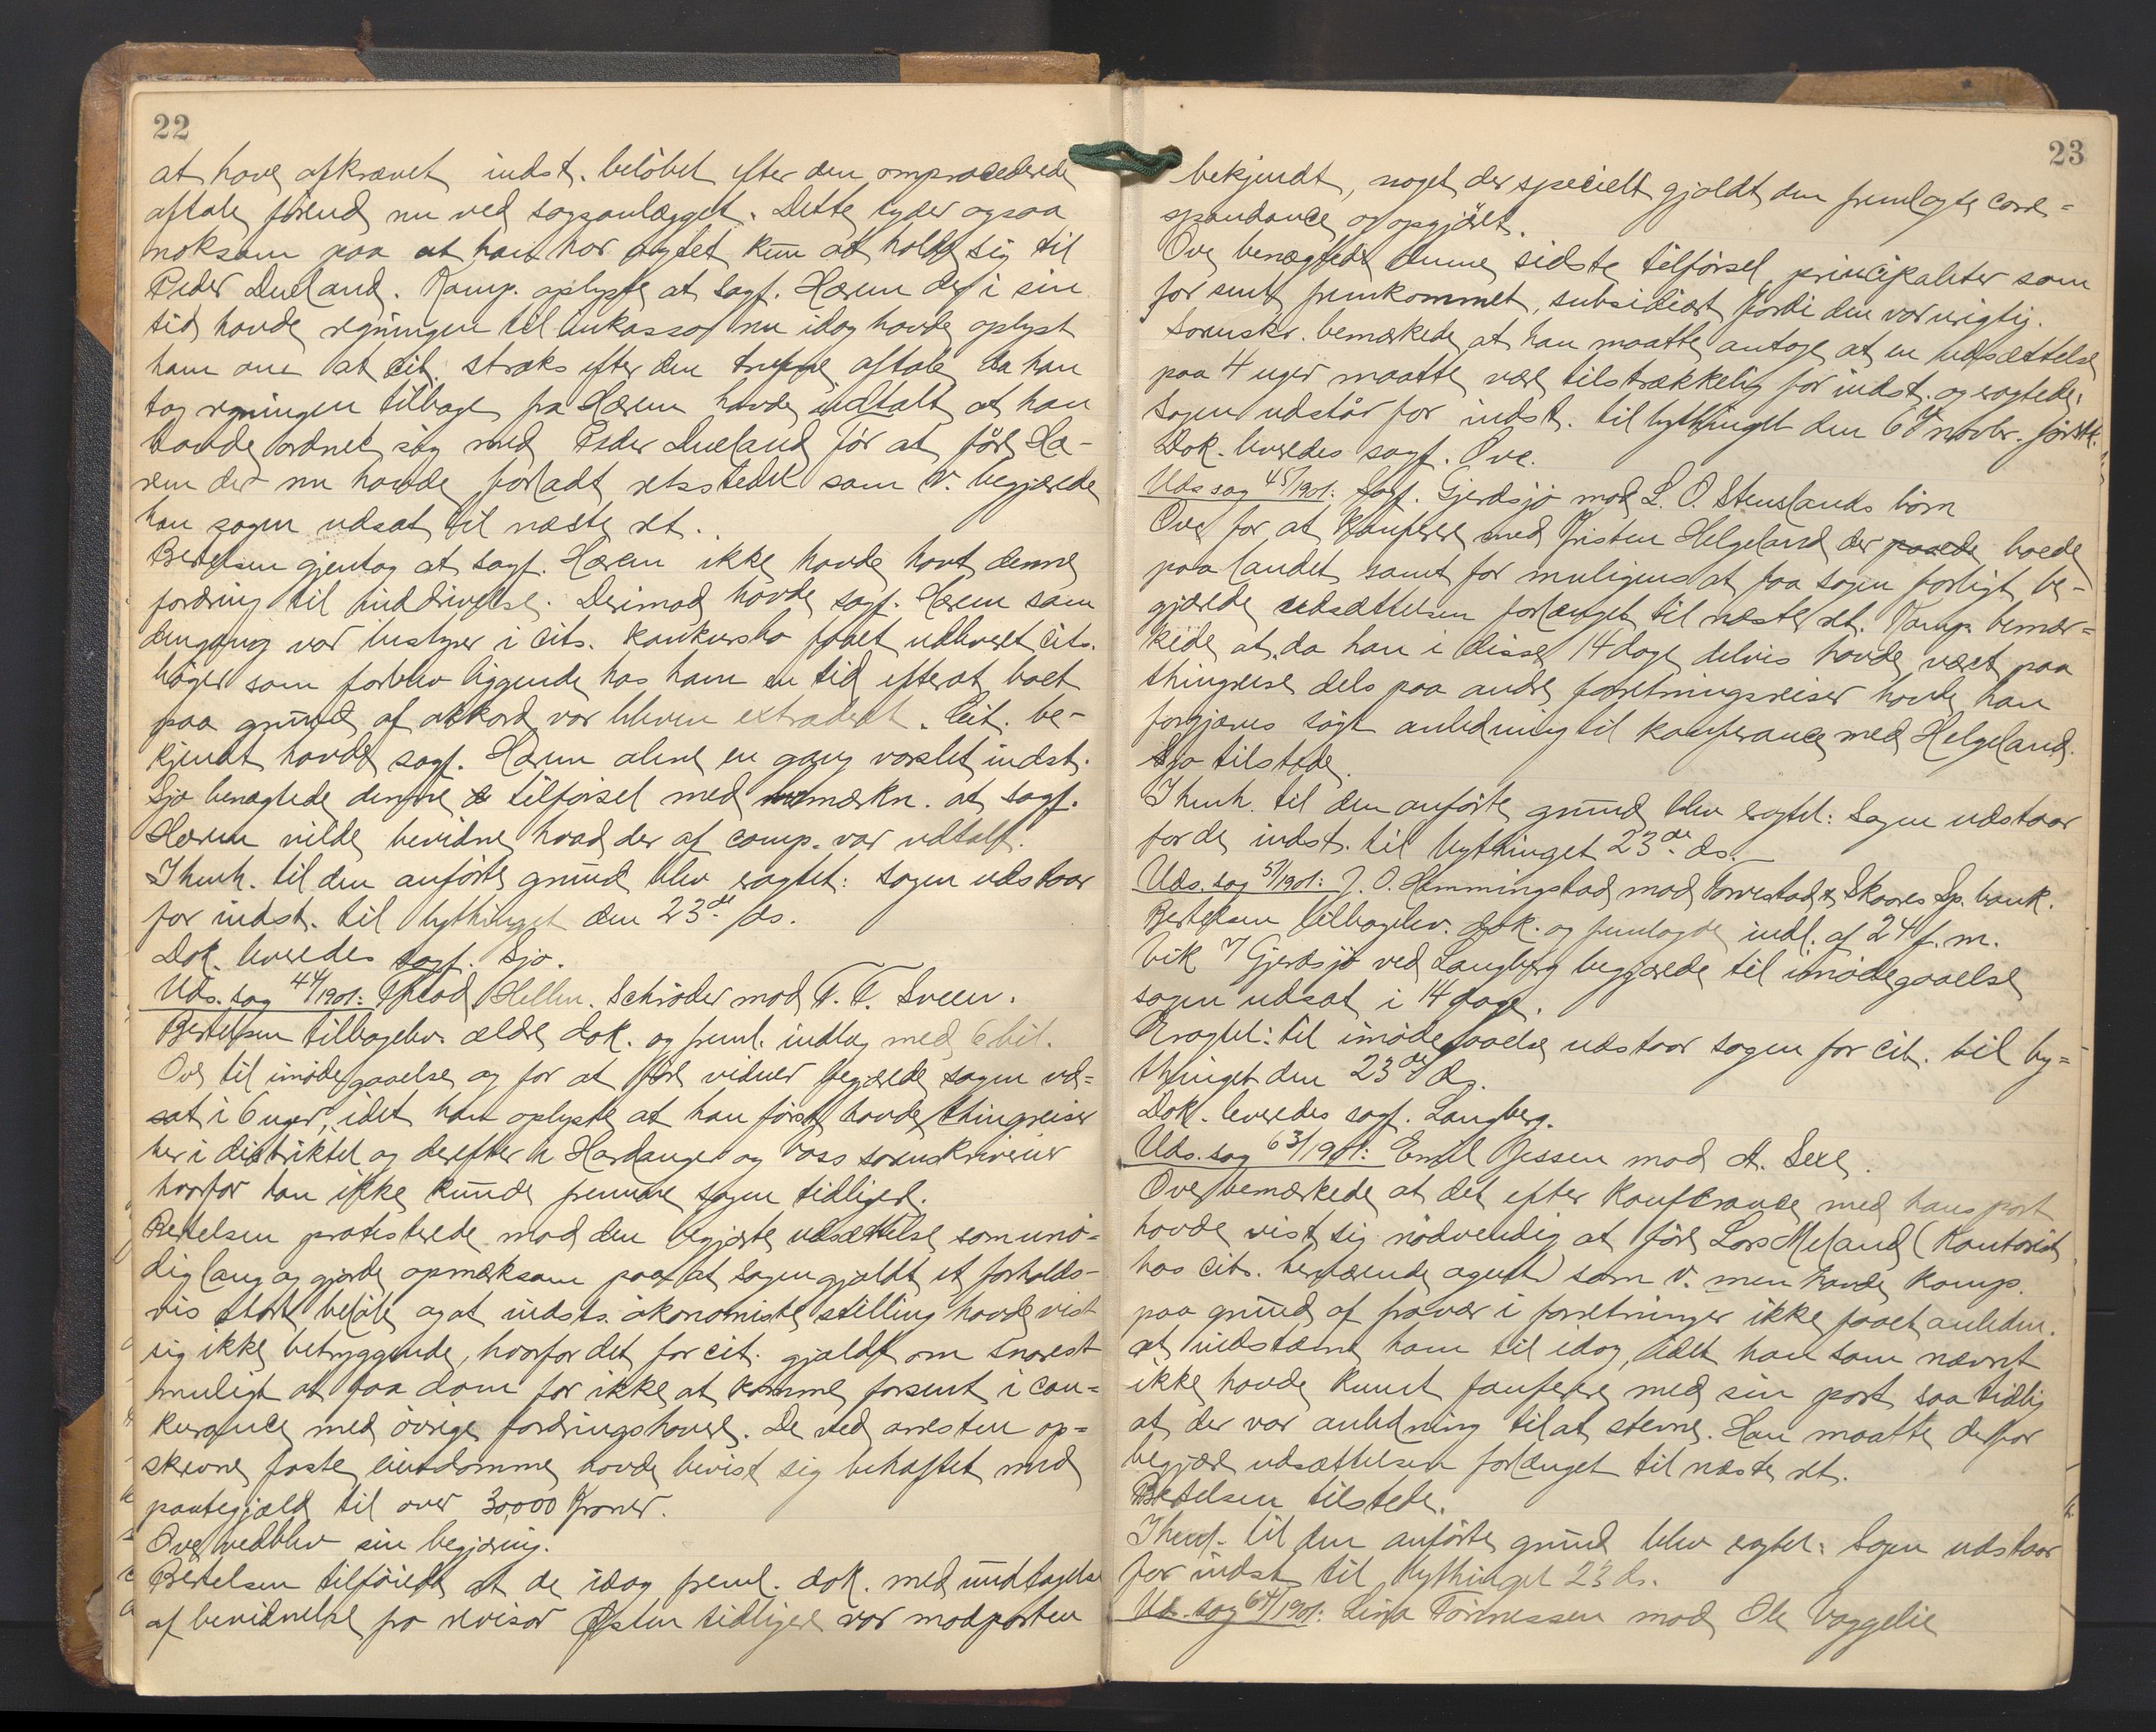 22
at have afkrævet indst. beløbet efter den omprocederede
aftale förend nu ved sagsanlægget. Dette tyder ogsaa
noksom paa at han har agtet kun at holde sig til
Peder Dueland. Komp. oplyste at sagf. Hærem der i sin
tid havde regningen til inkasso nu idag havde oplyst
ham om at cit. straks efter den trufne aftale da han
tog regningen tilbage fra Hærem havde udtalt at han
havde ordnet sig med Peder Dueland för at före Hæ-
rem der nu havde forladt retsstedet som v. begjærede
han sagen udsat til næste ret.
Bertelsen gjentog at sagf. Hærem ikke havde havt denne
fordring til inddrivelse. Derimod havde sagf. Hærem som
dengang var bestyrer i cits. konkursbo faaet udleveret cits.
böger som forblev liggende hos ham en tid efterat boet
paa grund af akkord var bleven extraderet. Cit. be-
kjendt havde sagf. Hærem alene en gang varslet indst.
Sjo benægtede denne tilförsel med bemærkn. at sagf.
Hærem vilde bevidne hvad der af comp. var udtalt.
I henh. til den anförte grund blev eragtet: Sagen udstaar
for indst. til bythinget den 23de ds.
Dok. leveredes sagf. Sjo.
Uds. sag 44/1901: Theod Hellm. Schröder mod T. T. Sveen.
Bertelsen tilbagelev. ældre dok. og freml. indlæg med 6 bil.
Ove til imödegaaelse og for at före vidner begjærede sagen ud-
sat i 6 uger, idet han oplyste at han först havde thingreiser
her i distriktet og derefter i Hardanger og Voss sorenskriverier
hvorfor han ikke kunde fremme sagen tidligere.
Bertelsen protesterede mod den begjærte udsættelse som unö-
dig lang og gjorde opmærksom paa at sagen gjaldt et forholds-
vis stort belöb og at indsts. ökonomiske stilling havde vist
sig ikke betryggende, hvorfor det for cit. gjaldt om snarest
muligt at faa dom for ikke at komme forsent i con-
kurance med övrige fordringshavere. De ved arresten op-
skrevne faste eiendomme havde bevist sig behæftet med
pantegjæld til over 30,000 kroner.
Ove vedblev sin begjæring.
Bertelsen tilföiede at de idag freml. dok. med undtagelse
af bevidnelse fra revisor Östen tidligere var modparten
23
bekjendt, noget der specielt gjaldt den fremlagte corre-
spondance og opgjöret.
Ove benægtede denne sidste tilförsel, principaliter som
for sent fremkommet, subsidiært fordi den var urigtig.
Sorenskr. bemærkede at han maatte antage at en udsættelse
paa 4 uger maatte være tilstrækkelig for indst. og eragtede:
Sagen udstår for indst. til bythinget den 6te novbr. förstk.
Dok. leveredes sagf. Ove.
Uds sag 45/1901: Sagf. Gjerdsjö mod L. O. Stenslands börn
Ove for at konferere med Kristen Helgeland der boede
paa landet samt for muligens at faa sagen forligt be-
gjærede udsættelsen forlænget til næste ret. Komp. bemær-
kede at da han i disse 14 dage delvis havde været paa
thingreise dels paa andre forretningsreiser havde han
forgjæves sögt anledning til konferance med Helgeland.
Sjo tilstede.
I henh. til den anförte grund blev eragtet: Sagen udstaar
for de indst. til bythinget 23de ds.
Uds. sag 57/1901: J. O. Hemmingstad mod Torvestad & Skaares Sp. bank.
Bertelsen tilbagelev. dok. og fremlagde indl. af 24 f. m.
Vik & Gjerdsjö ved Langberg begjærede til imödegaaelse
sagen udsat i 14 dage.
Eragtet: til imödegaaelse udstaar sagen for cit. til by-
thinget den 23de ds.
Dok. leveredes sagf. Langberg.
Uds. sag 63/1901: Emil Jessen mod A. Sexe.
Ove bemærkede at det efter konferance med hans part
havde vist sig nödvendig at före Lars Meland (kontorist
hos cits. herværende agent) som v. men havde komp.
paa grund af fravær i forretninger ikke faaet anledn.
at indstævne ham til idag, idet han som nævnt
ikke havde kunnet konferere med sin part saa tidlig
at der var anledning til at stevne. Han maatte derfor
begjære udsættelsen forlænget til næste ret.
Bertelsen tilstede.
I henh. til den anförte grund blev eragtet: Sagen udstaar
for indst. til bythinget 23 ds.
Uds. sag 64/1901: Lina Tönnessen mod Ole Vaggelie